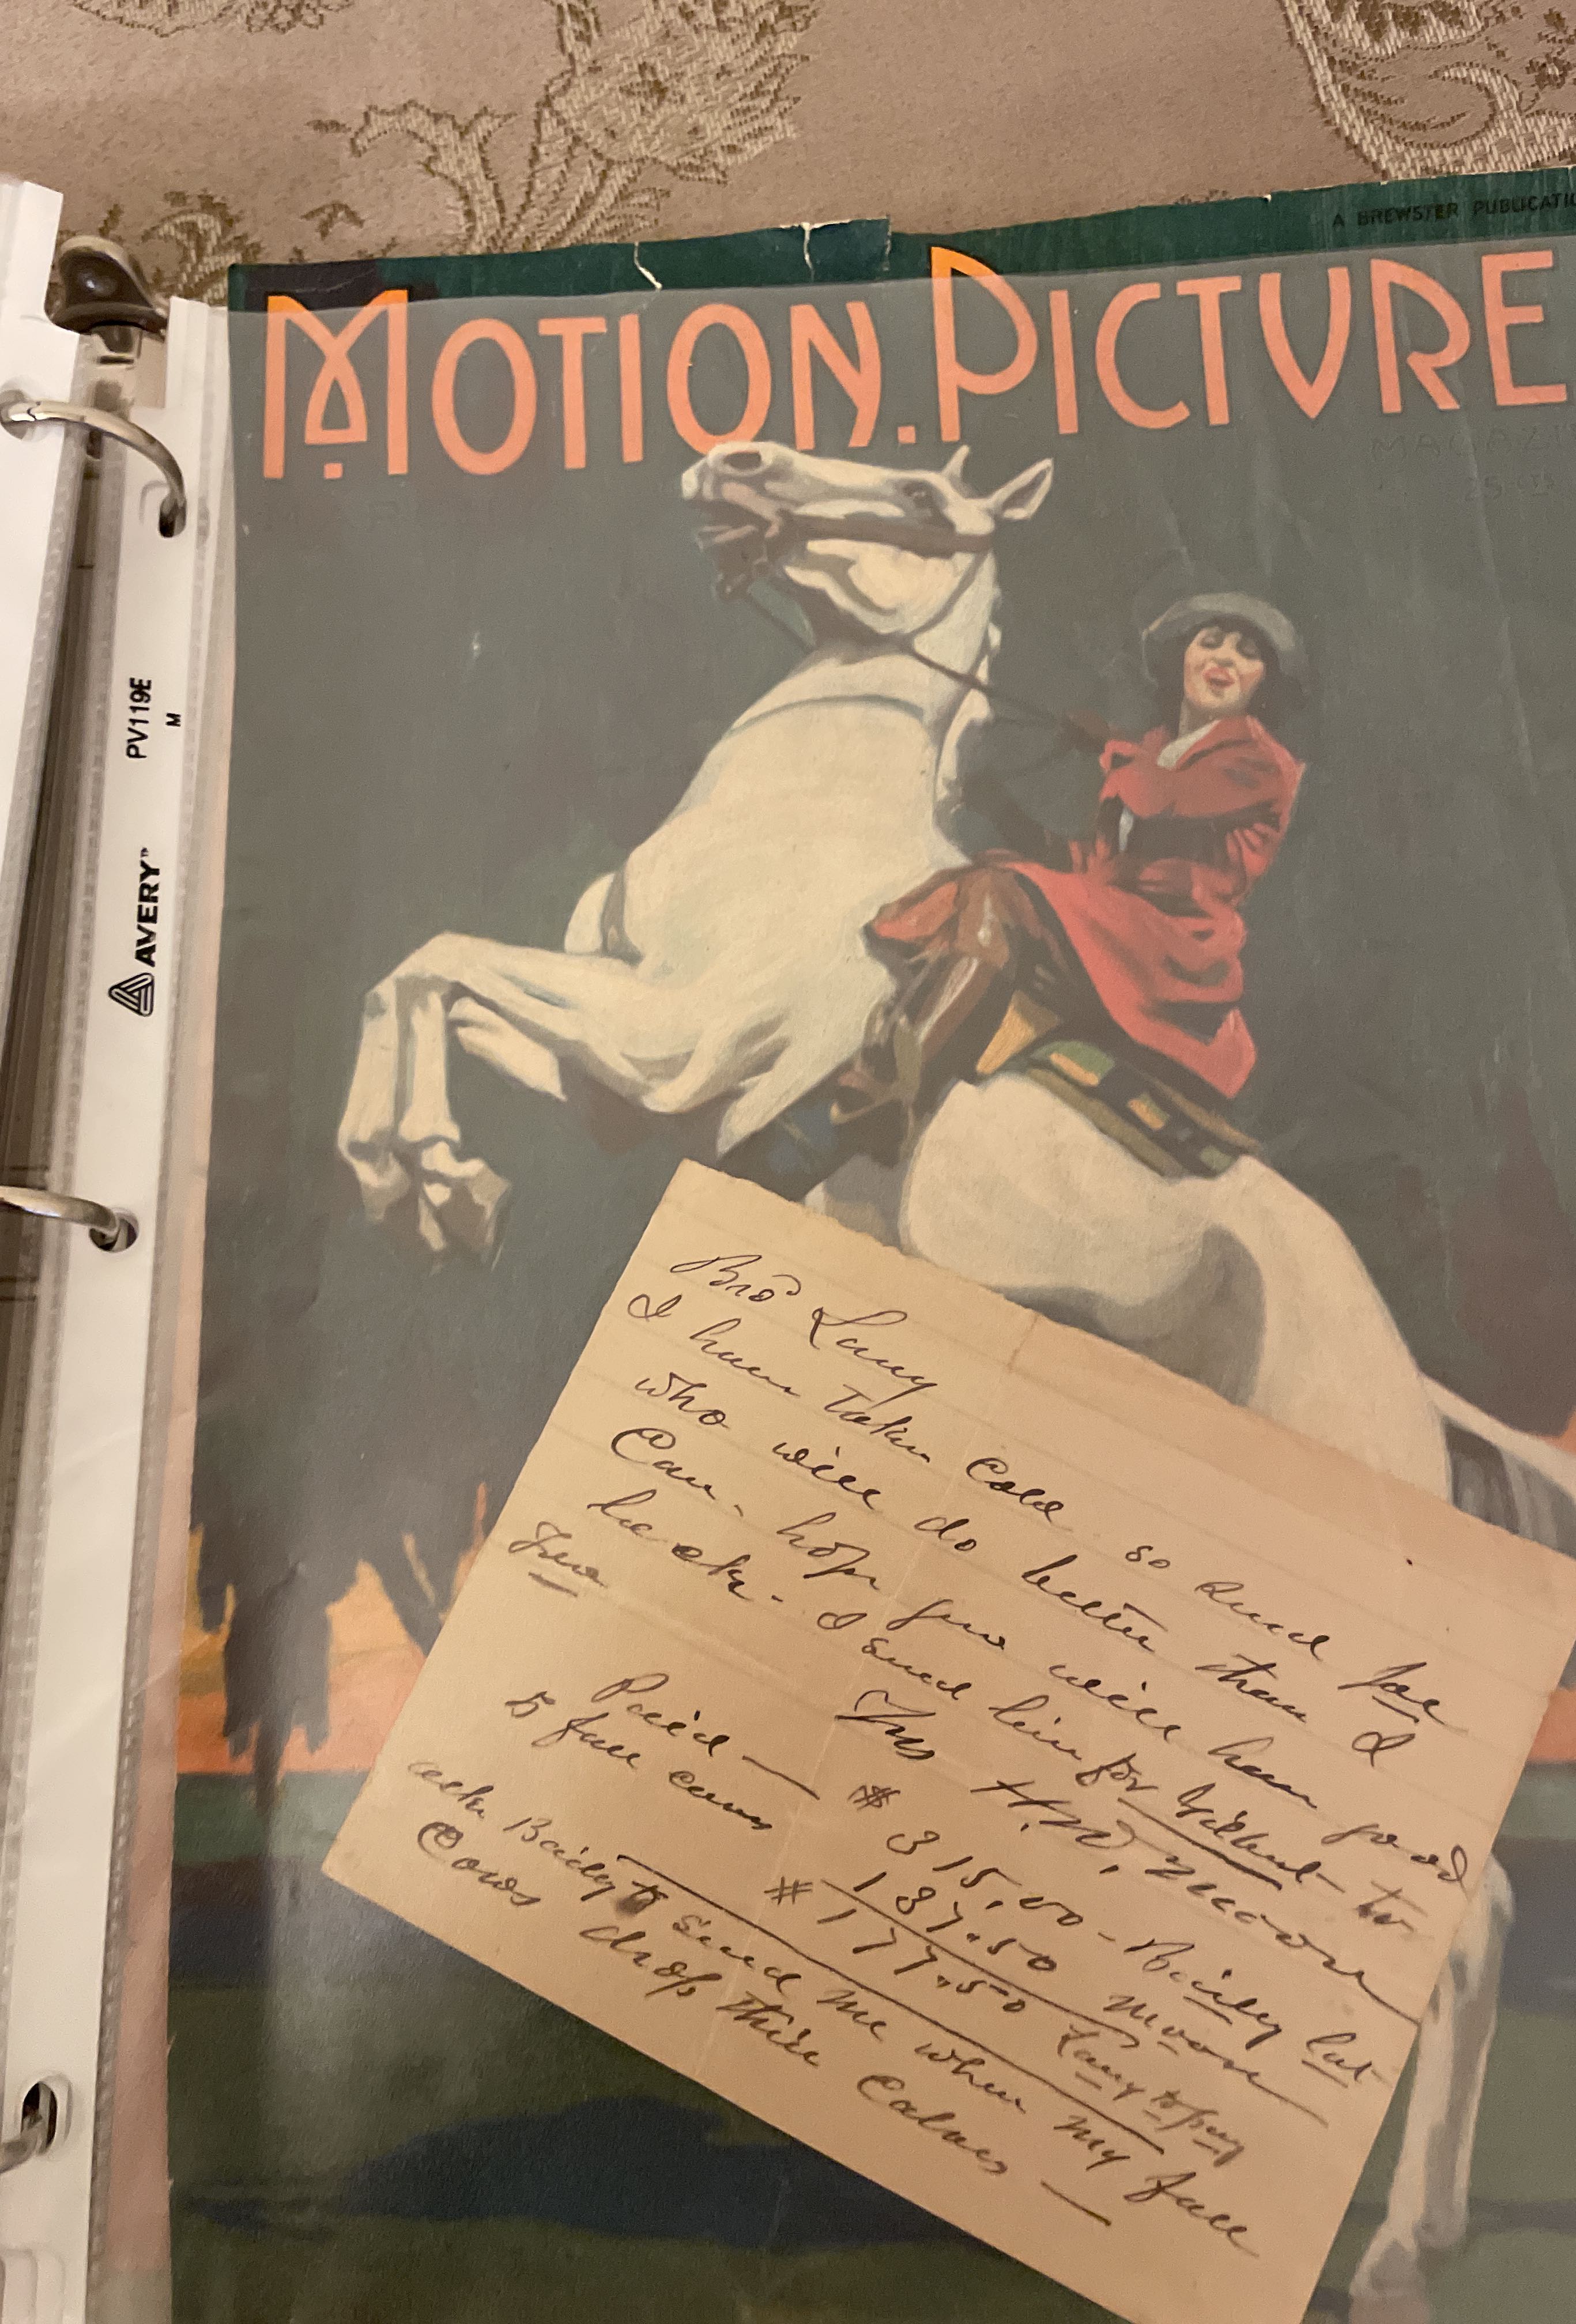 A BREWSTER PUBLICATI
MOTION PICTVRE
MAGAZI
PV119E
M
AVERY
Bro Lany
I have taken Cold so Send Joe
who will do better than I
Can - hope you will have good
luck. I send him for to
Yrs H.W. Moore
Paid — # 315.00 - Baily lot
5 fall cows 137.50 Moore
# 177.50 Lany to pay
ask Baily to send me when my fall
Cows drop their Calves —